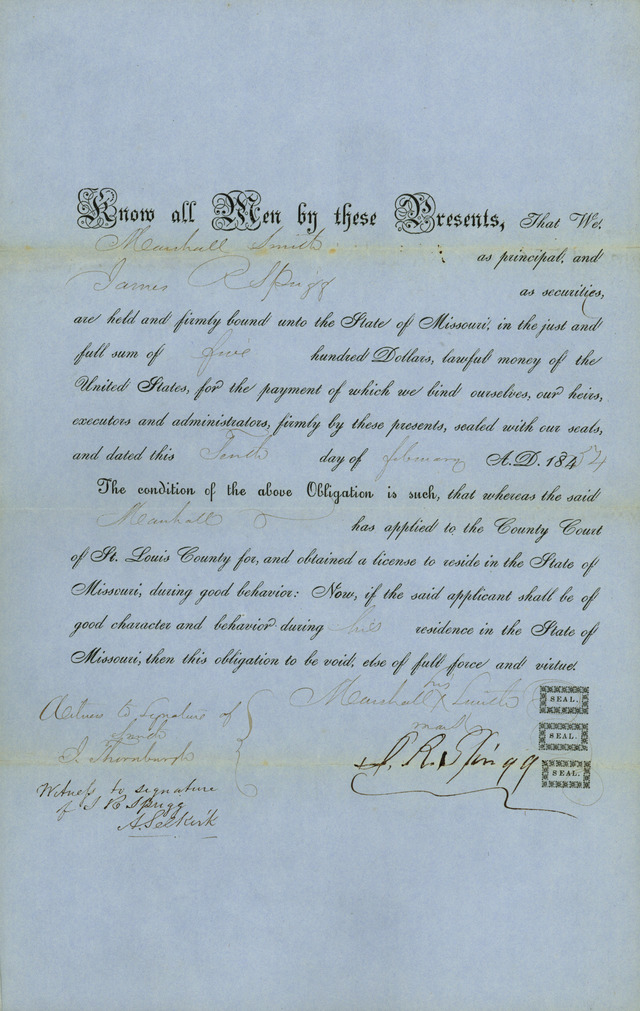 Know all Men by these Presents, That We,
Marshall Smith as principal, and
James R Sprigg as securities,
are held and firmly bound unto the State of Missouri, in the just and
full sum of five hundred Dollars, lawful money of the
United States, for the payment of which we bind ourselves, our heirs,
executors and administrators, firmly by these presents, sealed with our seals,
and dated this Tenth day of february A.D. 1854
The condition of the above Obligation is such, that whereas the said
Marshall has applied to the County Court
of St. Louis County for, and obtained a license to reside in the State of
Missouri, during good behavior: Now, if the said applicant shall be of
good character and behavior during his residence in the State of
Missouri, then this obligation to be void, else of full force and virtue.
his
Marshall X Smith SEAL.
mark
SEAL.
J. R. Sprigg SEAL.
Witness to Signature of
Smith
J. Thornburgh
Witness to signature
of J R Sprigg
A. Selkirk